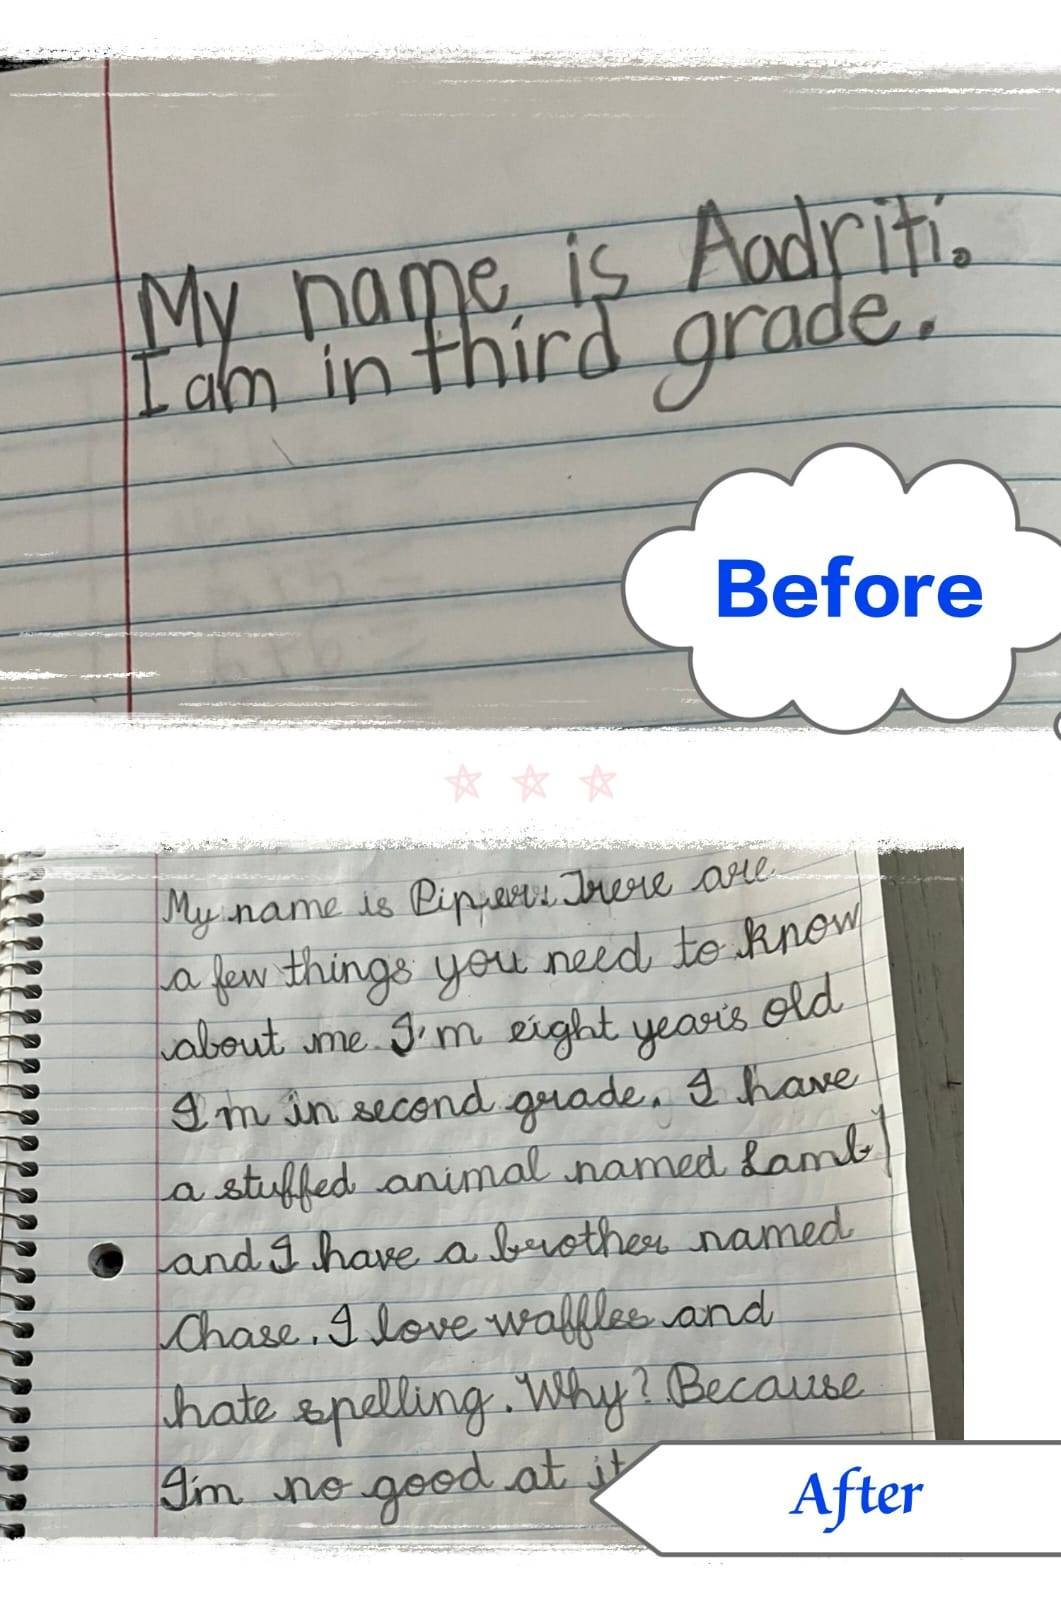 My name is Aadriti.
I am in third grade.
Before
My name is Piper. There are
a few things you need to know
about me I'm eight year's old
I'm in second grade. I have
a stuffed animal named Lamby
and I have a brother named
Chase. I love waffles and
hate spelling. Why? Because
I'm no good at it
After